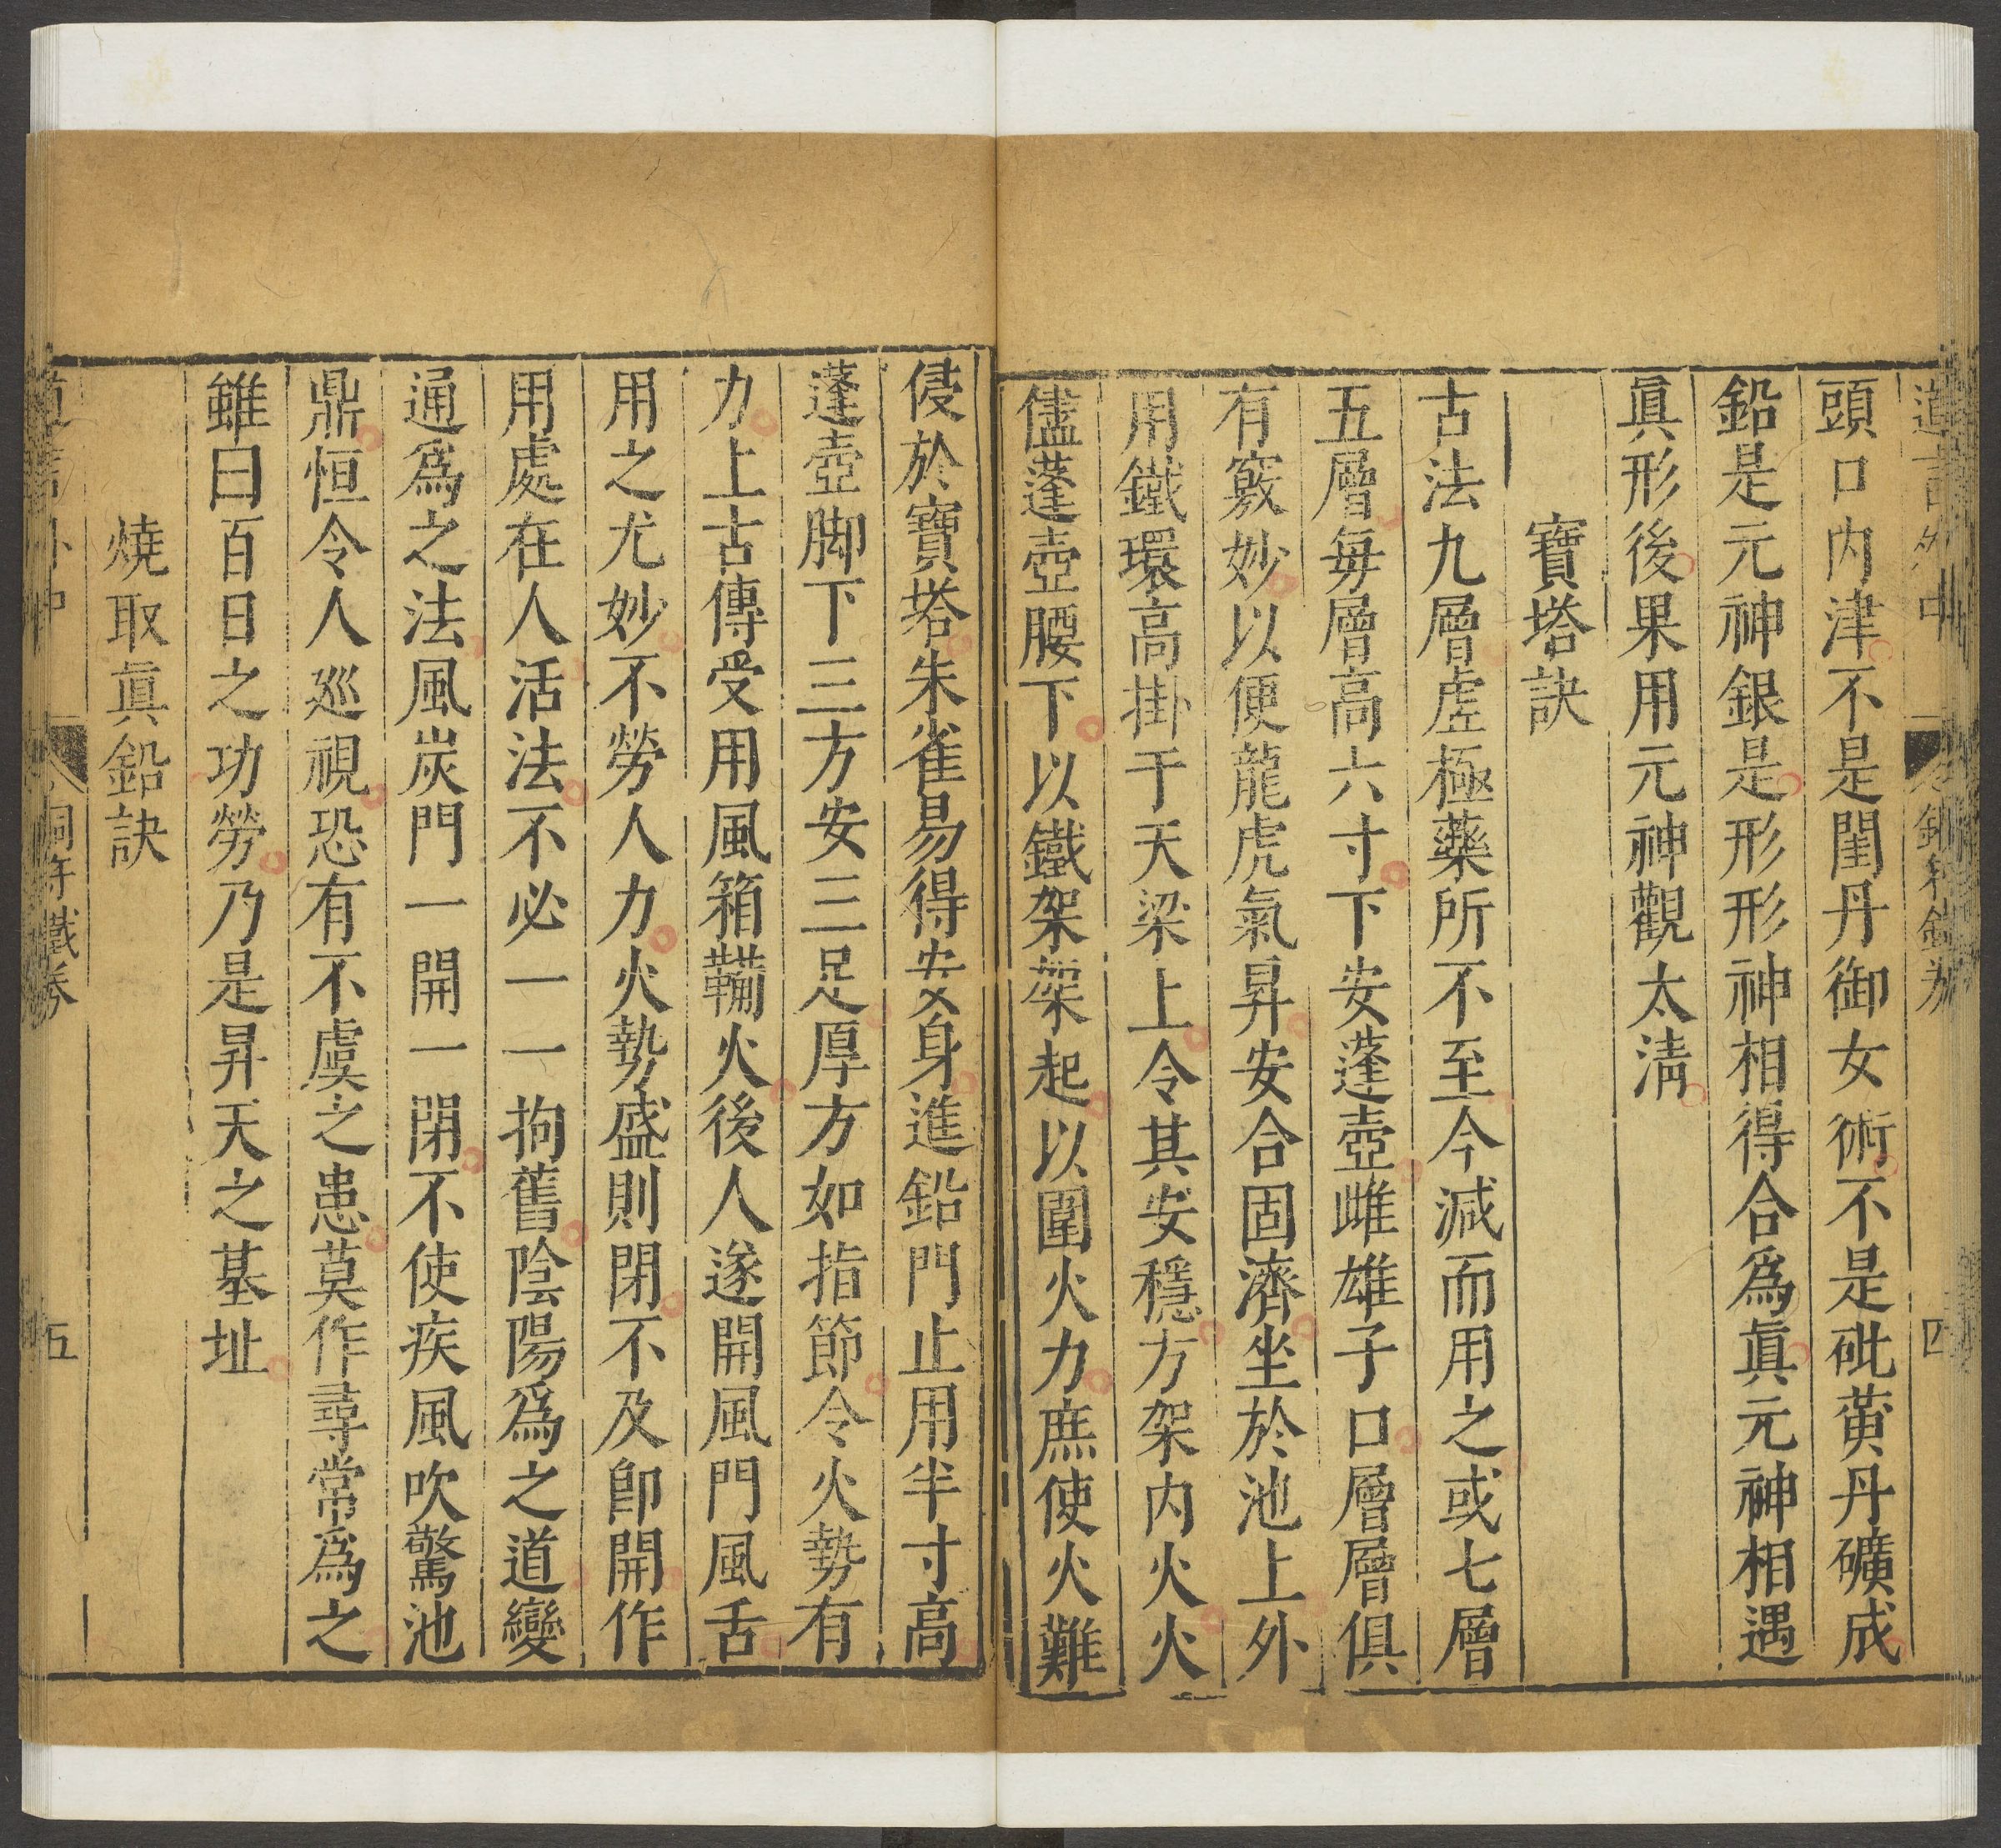 頭口內津不是閨丹御女術不是砒黃丹礦成
鉛是元神銀是形形神相得合為眞元神相遇
眞形後果用元神觀太淸
寶塔訣
古法九層虛極藥所不至今減而用之或七層
五層每層高六寸下安蓬壺雌雄子口層層俱
有竅妙以便龍虎氣昇安合固濟坐於池上外
用鐵環高掛于天梁上令其安穩方架內火火
儘蓬壺腰下以鐵架架起以圍火力庶使火難
侵於寶塔朱雀易得安身進鉛門止用半寸高
蓬壺脚下三方安三足厚方如指節令火勢有
力上古傳受用風箱鞴火後人遂開風門風舌
用之尤妙不勞人力火勢盛則閉不及卽開作
用處在人活法不必一一拘舊陰陽爲之道變
通爲之法風炭門一開一閉不使疾風吹驚池
鼎恒令人廵視恐有不虞之患莫作尋常爲之
雖曰百日之功勞乃是昇天之基址
燒取眞鉛訣
五